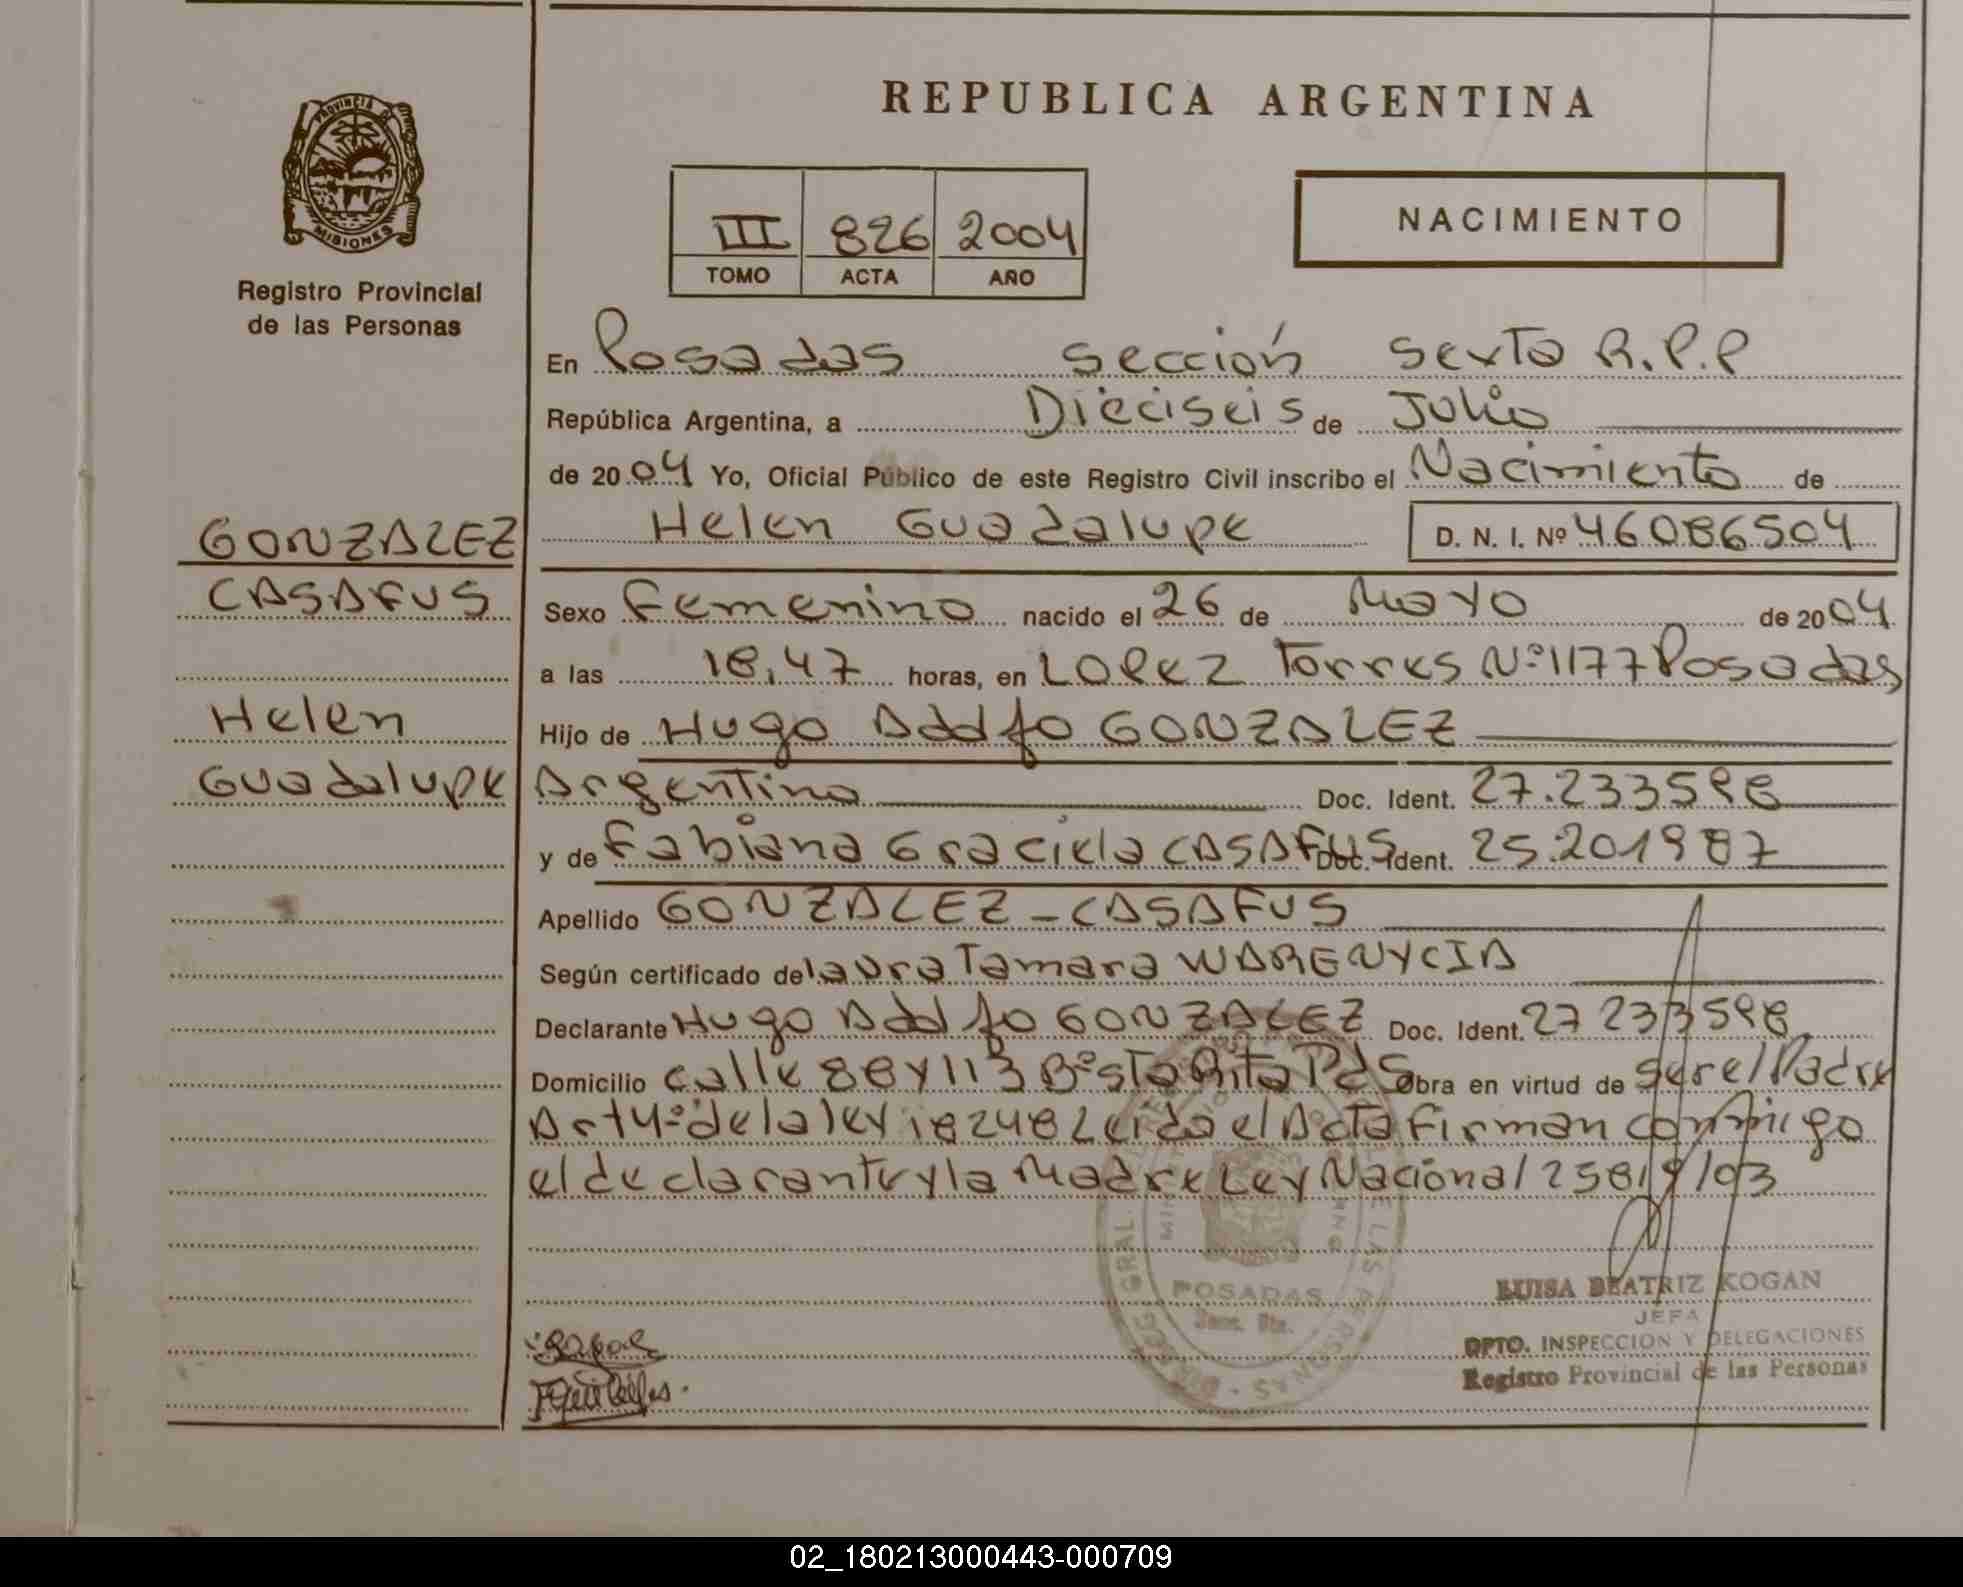 REPUBLICA ARGENTINA
PROVINCIA DE
MISIONES
Registro Provincial
de las Personas
III 826 2004
TOMO ACTA AÑO
NACIMIENTO
En Posadas Sección Sexta R.P.P
República Argentina, a Dieciseis de Julio
de 2004 Yo, Oficial Público de este Registro Civil inscribo el Nacimiento de
Helen Guadalupe D. N. I. Nº 46086504
GONZALEZ
CASAFUS
Helen
Guadalupe
Sexo Femenino nacido el 26 de Mayo de 2004
a las 18,47 horas, en LOPEZ Torres Nº 1177 Posadas
Hijo de Hugo Adolfo GONZALEZ
Argentina Doc. Ident. 27.233598
y de Fabiana Graciela CASAFUS Doc. Ident. 25.201987
Apellido GONZALEZ - CASAFUS
Según certificado de laura Tamara WARENYCIA
Declarante Hugo Adolfo GONZALEZ Doc. Ident. 27 233598
Domicilio calle 88 y 113 Bº Sta Rita Pdas Obra en virtud de ser el Padre
Art 4º de la ley 18248 Leida el Acta firman conmigo
el declarante y la Madre Ley Nacional 25819/03
POSADAS
LUISA BEATRIZ KOGAN
JEFA
DPTO. INSPECCION Y DELEGACIONES
Registro Provincial de las Personas
02_180213000443-000709